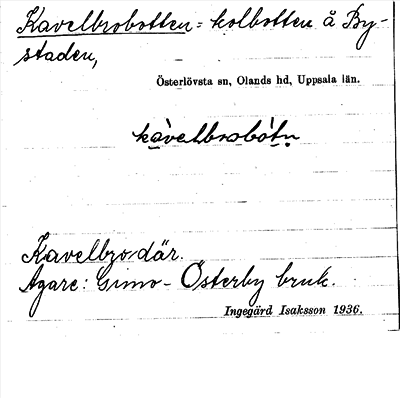 Kavelbrobotten = kolbotten å By-
staden,
Österlövsta sn, Olands hd, Uppsala län.
kàvelbrobòtn
Kavelbro där.
Ägare: Gimo - Österby bruk.
Ingegärd Isaksson 1936.